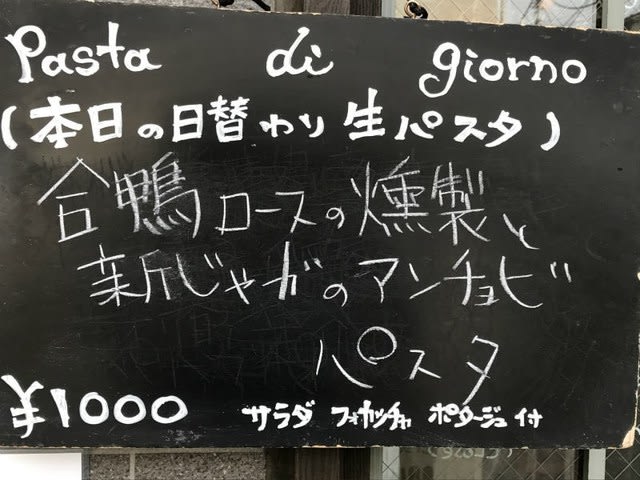 Pasta di giorno
(本日の日替わり生パスタ)
合鴨ロースの燻製と
新じゃがのアンチョビ
パスタ
¥1000 サラダ フォカッチャ ポタージュ付